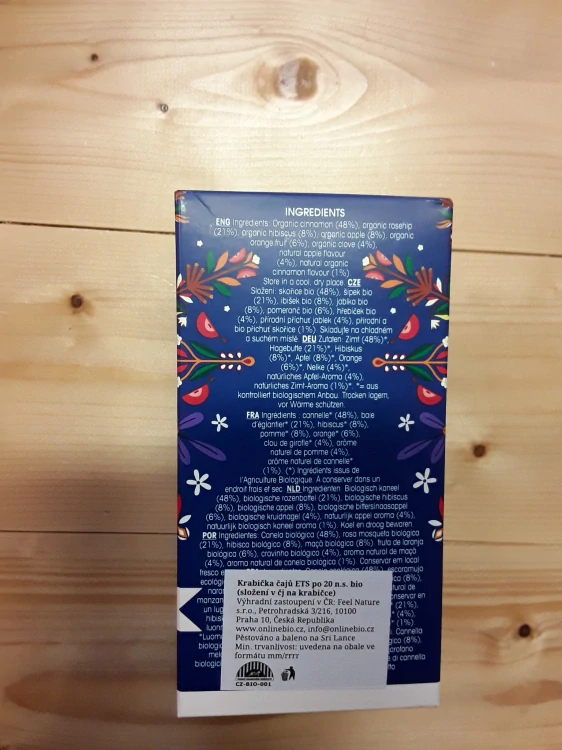 INGREDIENTS
ENG Ingredients: Organic cinnamon (48%), organic rosehip
(21%), organic hibiscus (8%), organic apple (8%), organic
orange fruit (6%), organic clove (4%),
natural apple flavour
(4%), natural organic
cinnamon flavour (1%)
Store in a cool, dry place. CZE
Složení: skořice bio (48%), šípek bio
(21%), ibišek bio (8%), jablka bio
(8%), pomeranč bio (6%), hřebíček bio
(4%), přírodní příchuť jablek (4%), přírodní a
bio příchuť skořice (1%). Skladujte na chladném
a suchém místě. DEU Zutaten: Zimt (48%)*,
Hagebutte (21%)*, Hibiskus
(8%)*, Apfel (8%)*, Orange
(6%)*, Nelke (4%)*,
natürliches Apfel-Aroma (4%),
natürliches Zimt-Aroma (1%)*. *= aus
kontrolliert biologischem Anbau. Trocken lagern,
vor Wärme schützen.
FRA Ingrédients : cannelle* (48%), baie
d'églantier* (21%), hibiscus* (8%),
pomme* (8%), orange* (6%),
clou de girofle* (4%), arôme
naturel de pomme (4%),
arôme naturel de cannelle*
(1%). (*) Ingrédients issus de
l'Agriculture Biologique. À conserver dans un
endroit frais et sec. NLD Ingredienten: Biologisch kaneel
(48%), biologische rozenbottel (21%), biologische hibiscus
(8%), biologische appel (8%), biologische bittersinaasappel
(6%), biologische kruidnagel (4%), natuurlijk appel aroma (4%),
natuurlijk biologisch kaneel aroma (1%). Koel en droog bewaren.
POR Ingredientes: Canela biológica (48%), rosa mosqueta biológica
(21%), hibisco biológico (8%), maçã biológica (8%), fruta de laranja
biológica (6%), cravinho biológico (4%), aroma natural de maçã
(4%), aroma natural de canela biológico (1%). Conservar em local
fresco e
escaramujo
Krabička čajů ETS po 20 n.s. bio
(složení v čj na krabičce)
Výhradní zastoupení v ČR: Feel Nature
s.r.o., Petrohradská 3/216, 10100
Praha 10, Česká Republika
www.onlinebio.cz, info@onlinebio.cz
Pěstováno a baleno na Srí Lance
Min. trvanlivost: uvedena na obale ve
formátu mm/rrrr
CZ-BIO-001